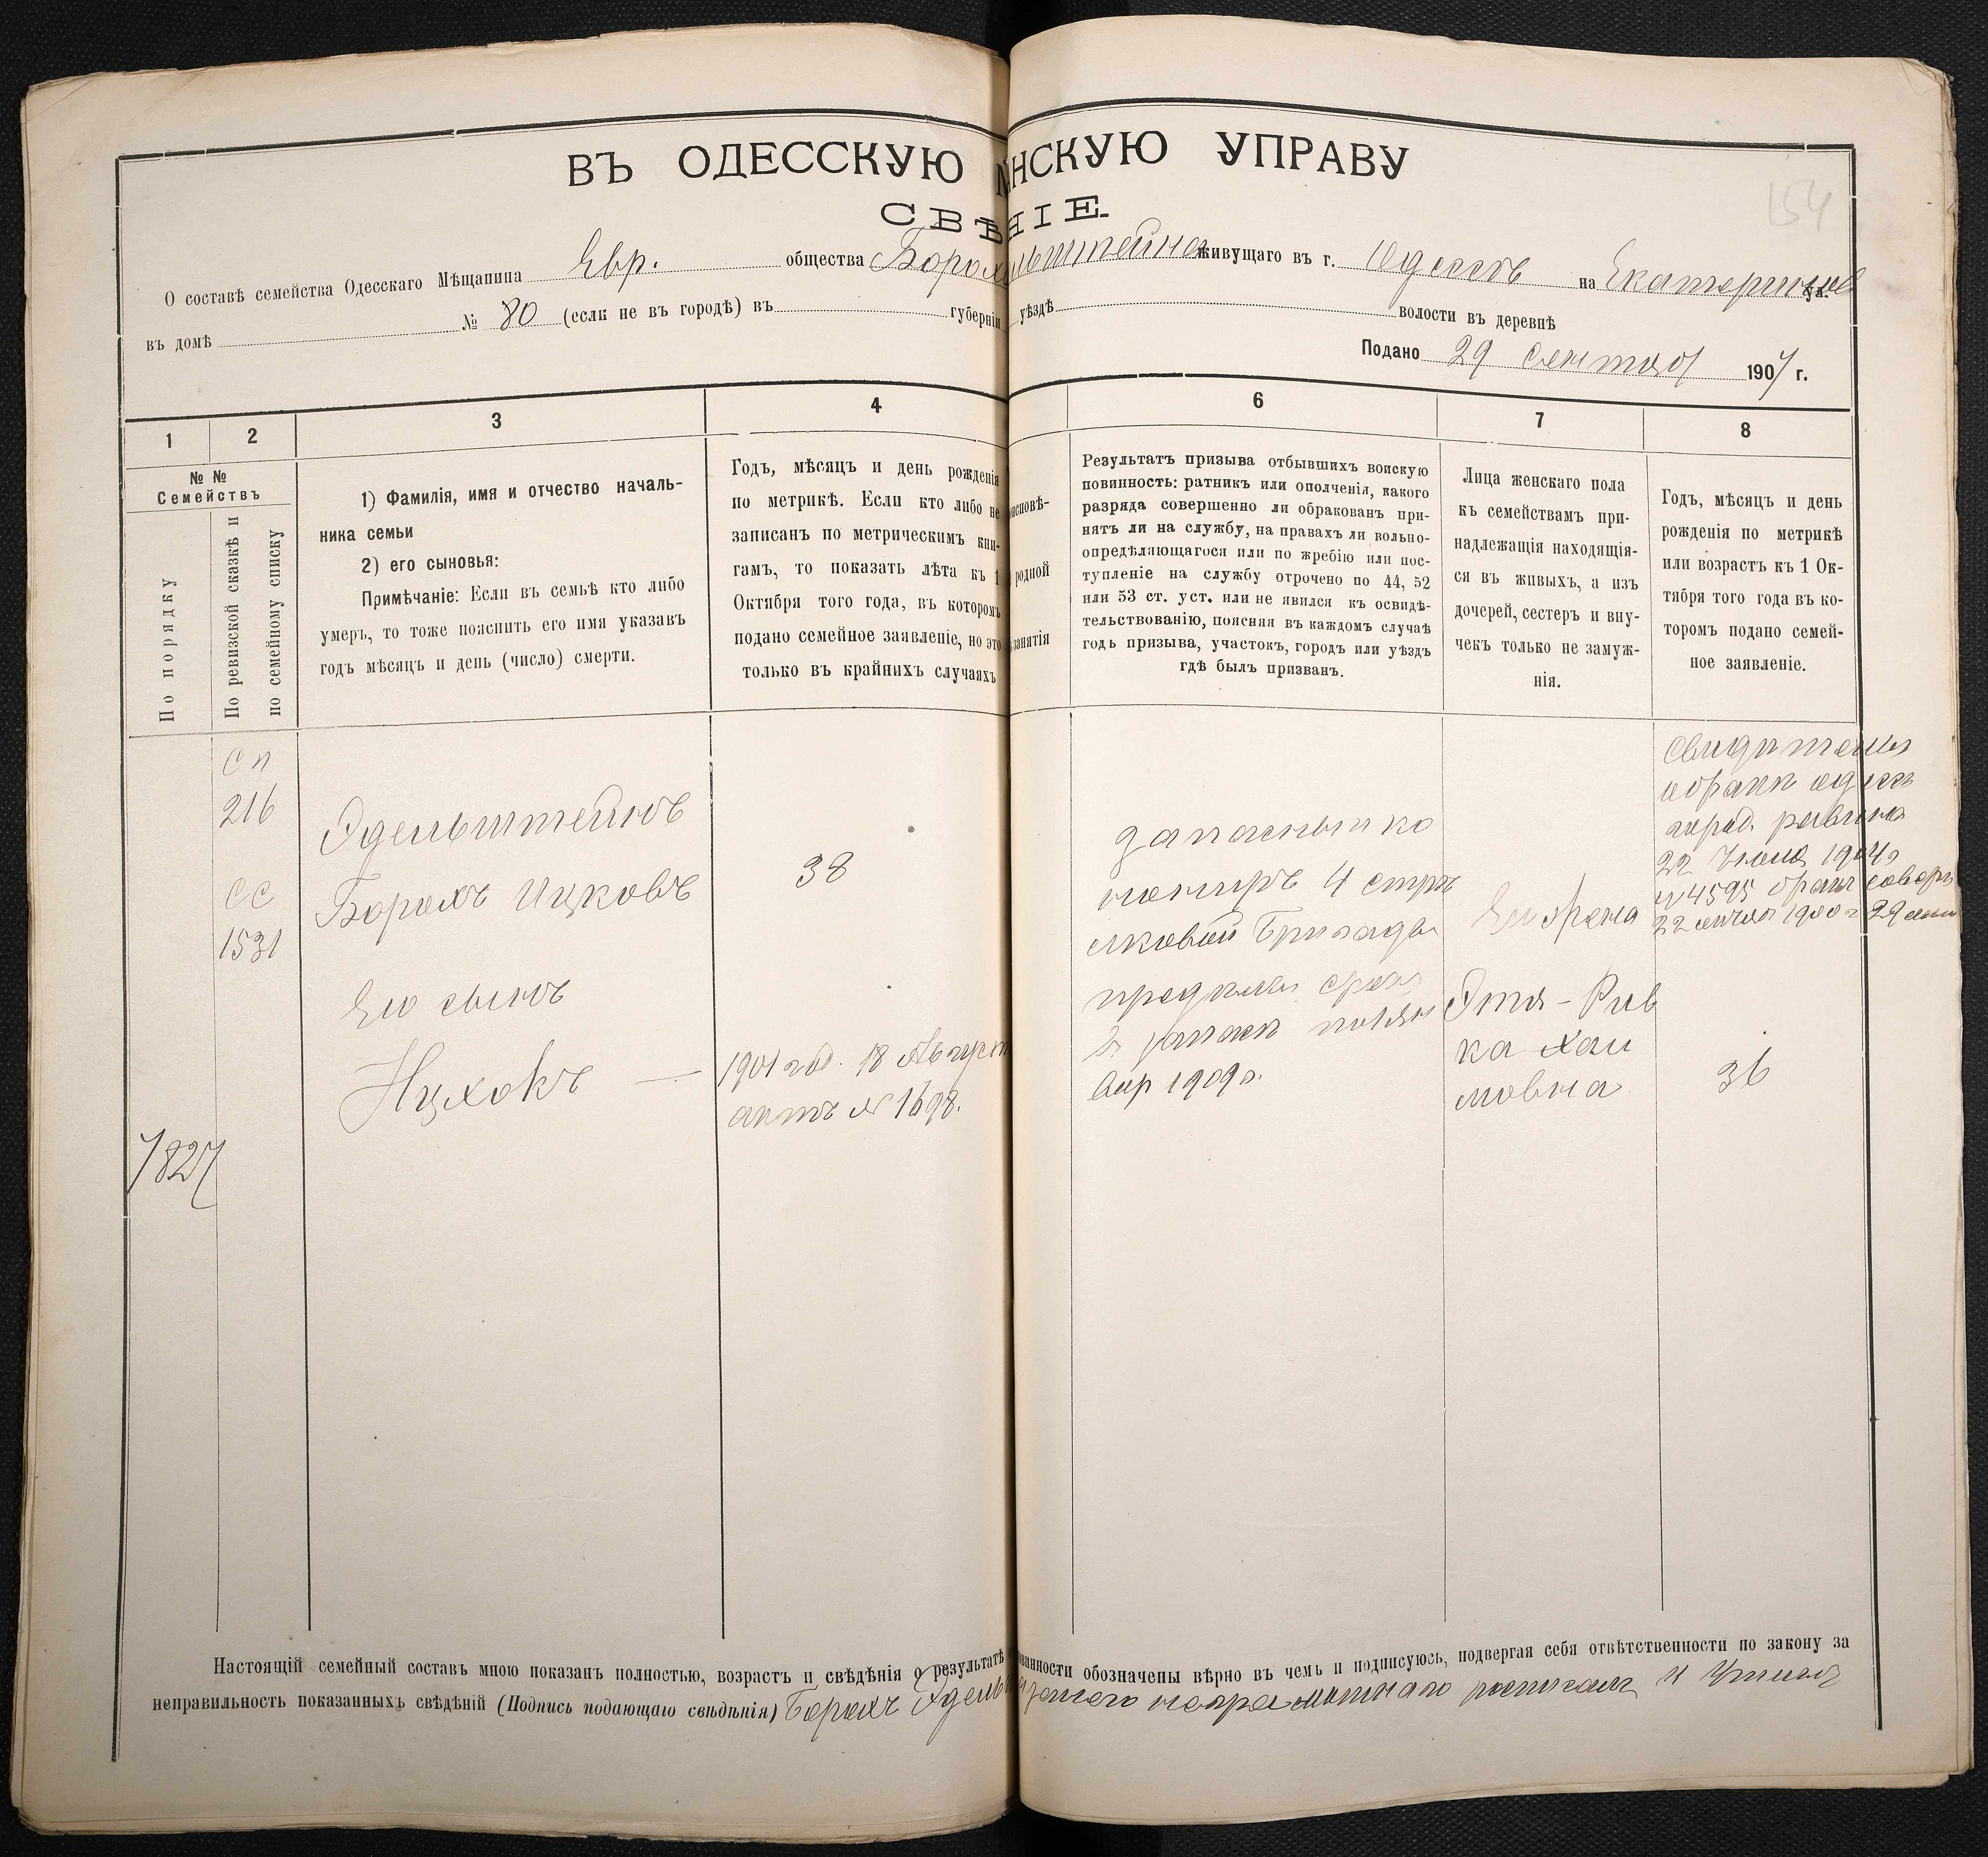 ВЪ ОДЕССКУЮ НСКУЮ УПРАВУ
СВѢ НІЕ.
154
О составѣ семейства Одесскаго Мѣщанина Евр. общества Борох льштейна живущаго въ г. Одессѣ на Екатеринин ул.
въ домѣ № 80 (если не въ городѣ) въ губерніи уѣздѣ волости въ деревнѣ
Подано 29 сентябр 1907 г.
1 2 3 4 6 7 8
№ №
Семействъ
По порядку
По ревизской сказкѣ и
по семейному списку
1) Фамилія, имя и отчество началь-
ника семьи
2) его сыновья:
Примѣчаніе: Если въ семьѣ кто либо
умеръ, то тоже пояснить его имя указавъ
годъ мѣсяцъ и день (число) смерти.
Годъ, мѣсяцъ и день рожденія
по метрикѣ. Если кто либо не
записанъ по метрическимъ кни-
гамъ, то показать лѣта къ 1
Октября того года, въ которомъ
подано семейное заявленіе, но это
только въ крайныхъ случаяхъ
исповѣ-
родной
занятія
Результатъ призыва отбывшихъ воискую
повинность: ратникъ или ополченія, какого
разряда совершенно ли обракованъ при-
нятъ ли на службу, на правахъ ли вольно-
опредѣляющагося или по жребію или пос-
тупленіе на службу отрочено по 44, 52
или 53 ст. уст. или не явился къ освидѣ-
тельствованію, поясняя въ каждомъ случаѣ
годъ призыва, участокъ, городъ или уѣздъ
гдѣ былъ призванъ.
Лица женскаго пола
къ семействамъ при-
надлежащія находящія-
ся въ живыхъ, а изъ
дочерей, сестеръ и вну-
чекъ только не замуж-
нія.
Годъ, мѣсяцъ и день
рожденія по метрикѣ
или возрастъ къ 1 Ок-
тября того года въ ко-
торомъ подано семей-
ное заявленіе.
СП
216
СС
1531
7827
Эдельштейнъ
Борохъ Ицковъ
Его сынъ
Ицхокъ —
38
1901 год. 18 Август
актъ № 1698.
запасный ко
4 стр
лковой Бригады
1909 г.
Его жена
Этя-Рив
ка Хаи
мовна
город. равина
22 1904 г
№ 4595
22 1900 г
36
Настоящій семейный составъ мною показанъ полностью, возрастъ и свѣдѣнія о результатѣ овинности обозначены вѣрно въ чемъ и подписуюсь, подвергая себя отвѣтственности по закону за
неправильность показанныхъ свѣдѣній (Подпись подающаго свѣдѣнія) Борохъ Эдель